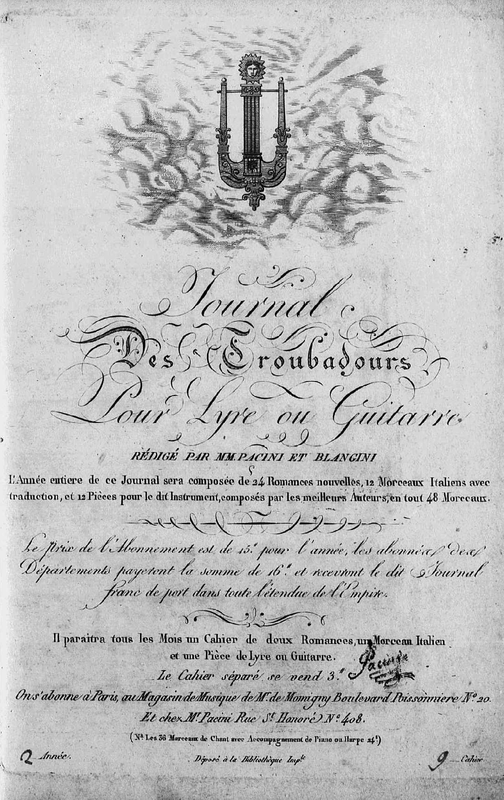 Journal
Des Troubadours
Pour Lyre ou Guitarre
RÉDIGÉ PAR MM. PACINI ET BLANGINI
L'Année entiere de ce Journal sera composée de 24 Romances nouvelles, 12 Morceaux Italiens avec
traduction, et 12 Pièces pour le dit Instrument, composés par les meilleurs Auteurs, en tout 48 Morceaux.
Le prix de l'Abonnement est de 15.ᶠ pour l'année, les abonnés des
Départements payeront la somme de 16.ᶠ et recevront le dit Journal
franc de port dans toute l'étendue de l'Empire.
Il paraitra tous les Mois un Cahier de deux Romances, un Morceau Italien
et une Pièce de Lyre ou Guitarre.
Le Cahier séparé se vend 3.ᶠ
Pacini
On s'abonne à Paris, au Magasin de Musique de Mr. de Momigny Boulevard Poissonniere No. 20.
Et chez Mr. Pacini Rue St. Honoré No. 408.
(Na. Les 36 Morceaux de Chant avec Accompagnement de Piano ou Harpe 24.ᶠ)
2 Année. Déposé à la Bibliothèque Imple. 9 Cahier